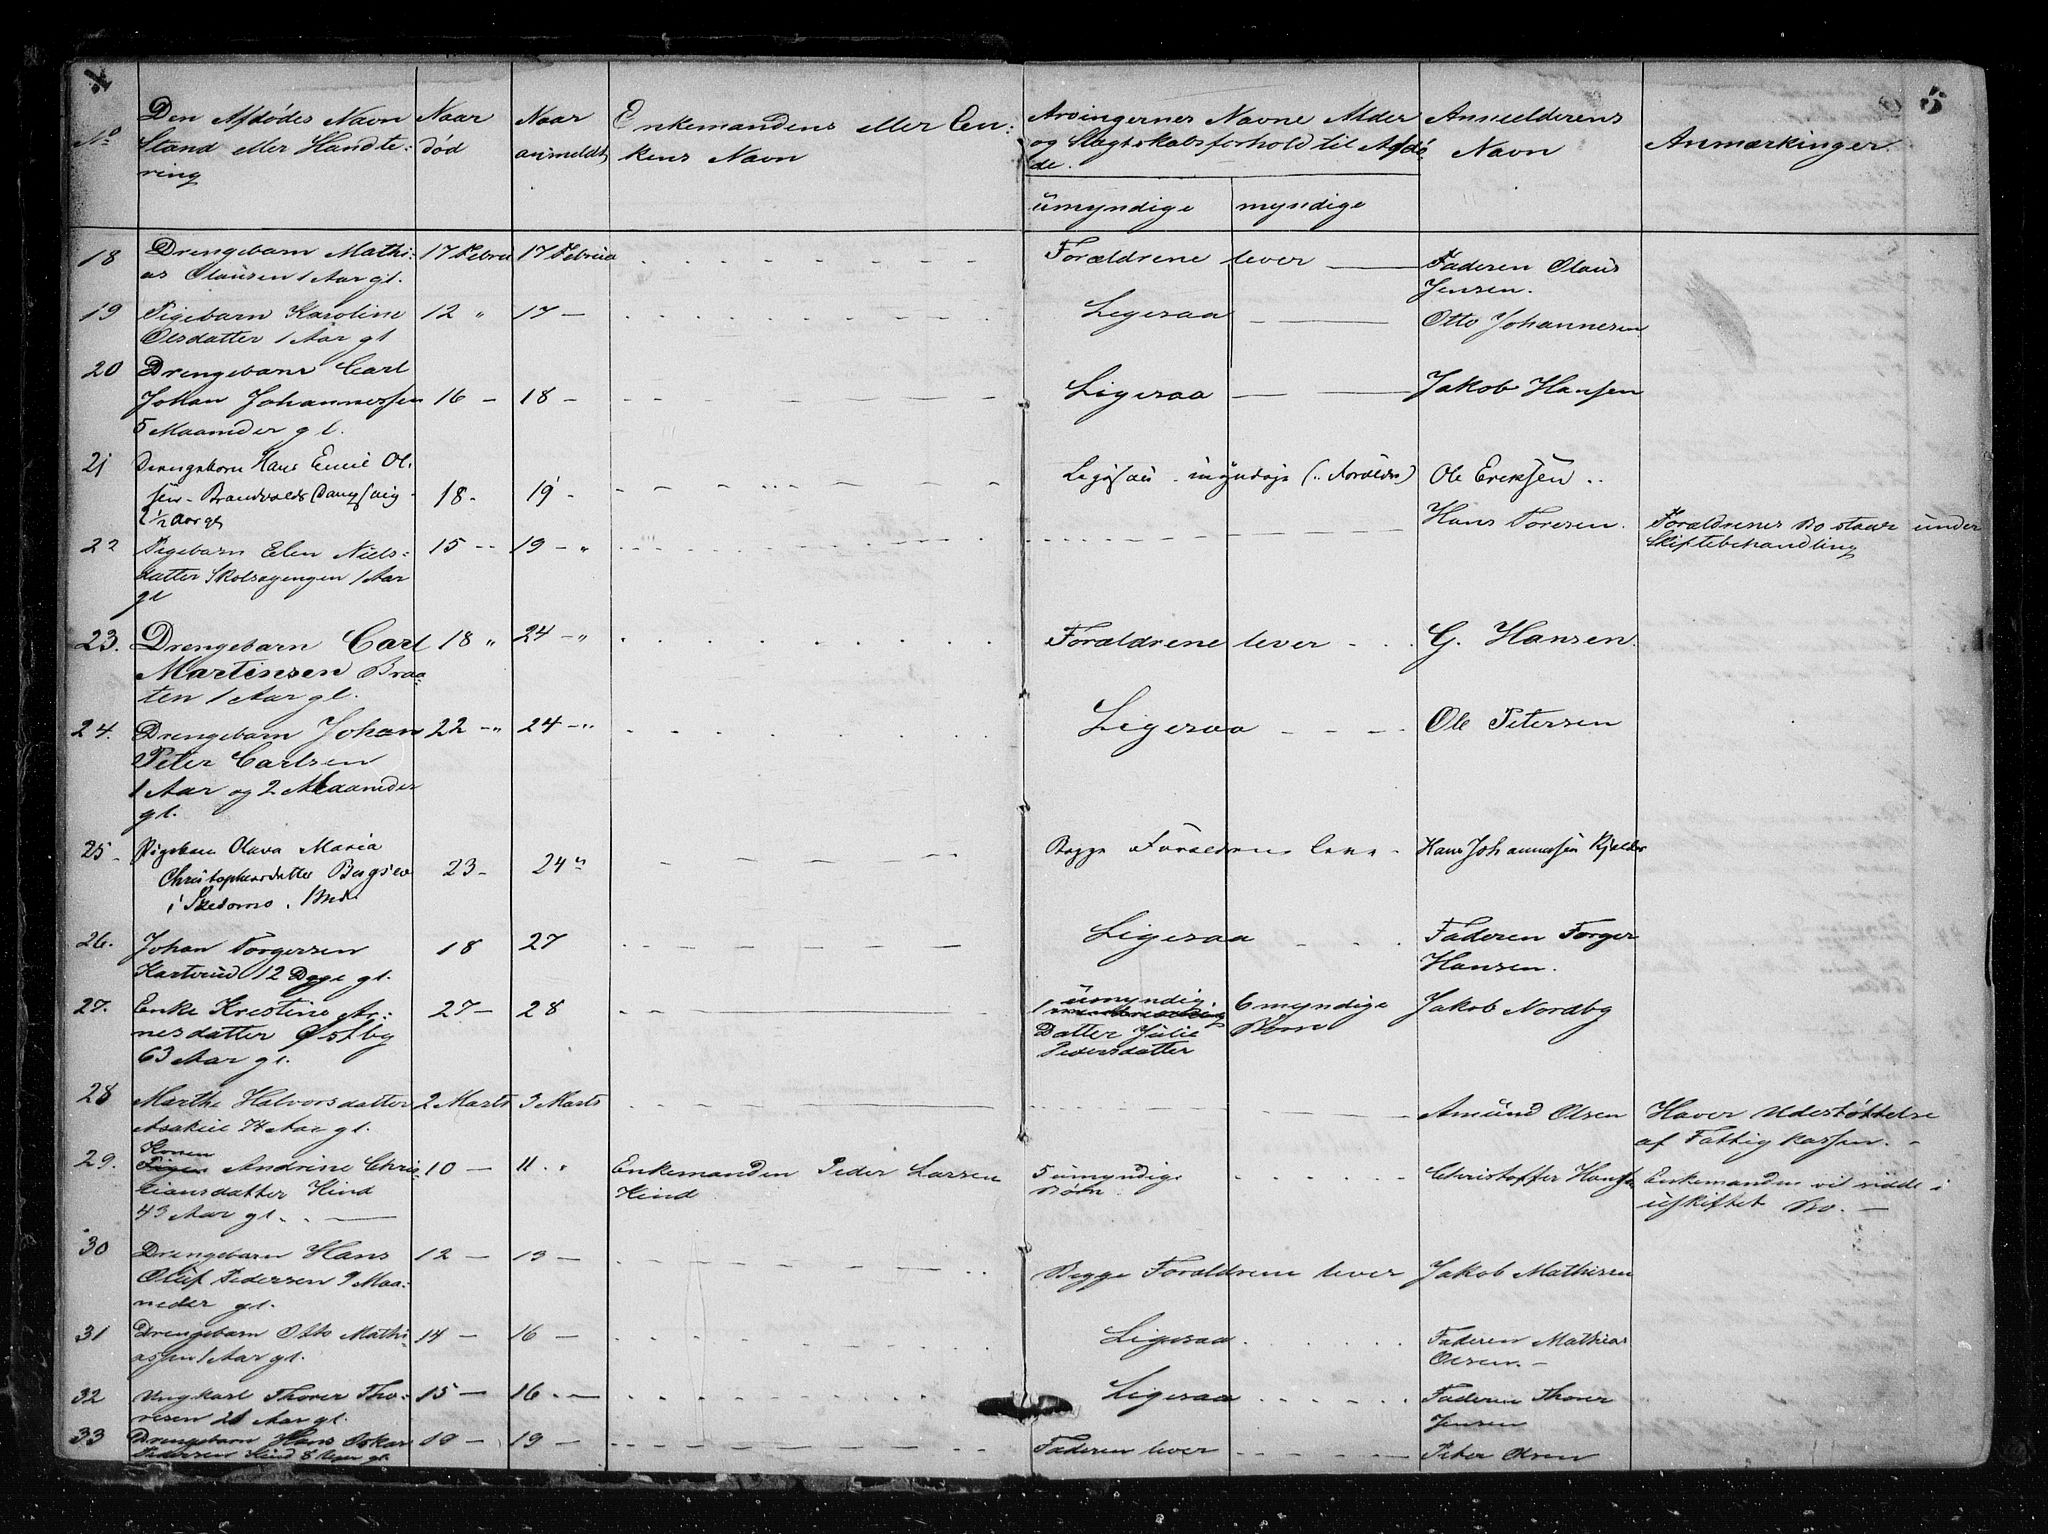 4
5
No
Den Afdødes Navn
Stand eller Handte-
ring
Naar
død
Naar
anmeldt
Enkemandens eller En-
kens Navn
Arvingernes Navne Alder
og Slægtskabsforhold til Afdø
de.
umyndige
myndige
Anmelderens
Navn
Anmærkninger
18 Drengebarn Mathi- 17 Februa 17 Februa Forældrene lever Faderen Olaus
as Olausen 1 Aar gl. Jensen.
19 Pigebarn Karoline 12 " 17 — Ligesaa Otto Johannesen
Olsdatter 1 Aar gl
20 Drengebarn Carl
Johan Johannessen 16 — 18 — Ligesaa Jakob Hansen
5 Maaneder gl.
21 Drengebarn Hans Emil Ol-
sen 18 - 19 - Ole Eriksen
2 1/2 Aar gl
22 Pigebarn Elen Niels- 15 - 19 - " Hans Toresen. Forældrenes Bo staar under
datter 1 Aar Skiftebehandling
gl
23. Drengebarn Carl 18 " 24 - " Forældrene lever G. Hansen.
Martinsen Braa-
ten 1 Aar gl.
24. Drengebarn Johan 22 - " 24 - " Ligesaa Ole Petersen
Peter Carlsen
1 Aar og 2 Maaneder
gl.
25 Pigebarn Olava Maria Begge Forældrene leve Hans Johannesen
Christophersdatter 23 - 24 "
i
26. Johan Torgersen 18 27 Ligesaa Faderen Torger
12 Dage gl. Hansen.
27. Enke Kristine Ar- 27 — 28 1 umyndig 6 myndige Jakob Nordby
nesdatter Østby Datter Julie Børn
63 Aar gl. Pedersdatter
28 Marthe Halvorsdatter 2 Marts 3 Marts Amund Olsen Haver Understøttelse
74 Aar gl. af Fattigkassen. -
29. Konen Andrine Chris- 10 — 11 - " Enkemanden Peder Larsen 5 umyndige Christoffer Hansen Enkemanden vil sidde i
tiansdatter Kind Kind Børn uskiftet Bo. —
43 Aar gl.
30 Drengebarn Hans 12 — 13 — Begge Forældrene lever Jakob Mathisen
Oluf Pedersen 9 Maa-
neder gl.
31 Drengebarn Otto Mathi- 14 — 16 — Ligesaa Faderen Mathias
assen 1 Aar gl. Olsen. -
32 Ungkarl Thorer Tho- 15 — 16 - — Ligesaa Faderen Thorer
resen 21 Aar gl. Jensen
33 Drengebarn Hans Oskar 19 — 19 — Faderen lever Peter Olsen
Pedersen Kind 8 Uger gl.